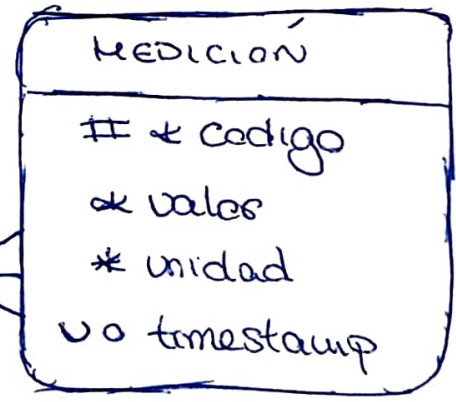 MEDICIÓN
# * codigo
* valor
* unidad
U o timestamp